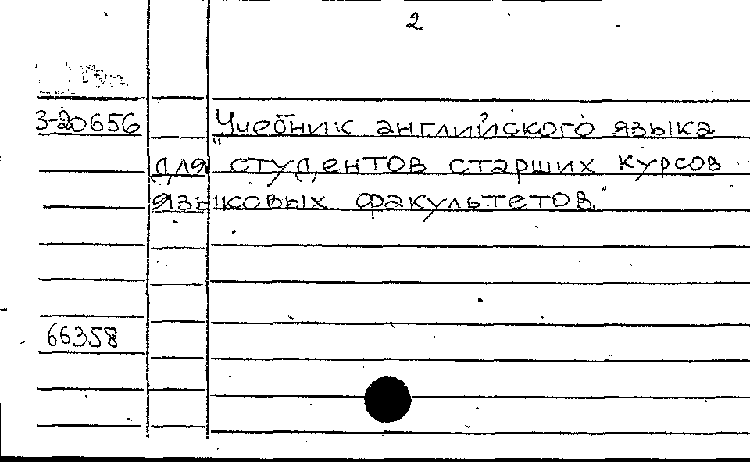 2
З-20656 Учебник английского языка
для "студентов старших курсов
языковых факультетов."
66358